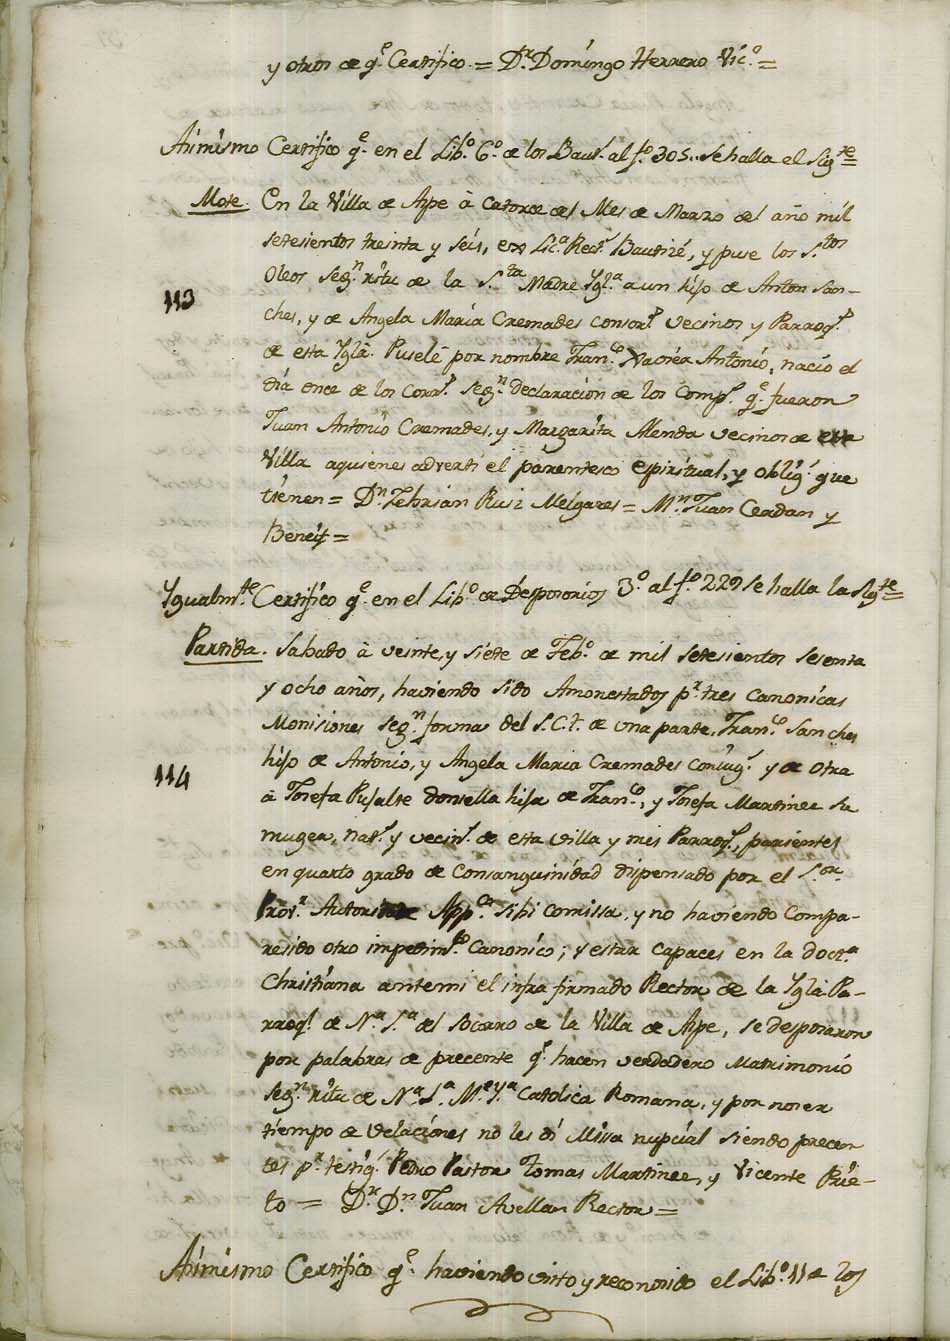 y otros de q.e Certifico = D.r Domingo Herrero Vic.o =
Asimismo Certifico q.e en el Lib.o 6.o de los Baut.s al f.o 305. se halla el Sig.te =
Mote. En la Villa de Aspe à catorce del Mes de Marzo del año mil
setesientos treinta y seis, Lic.a Rect.l Bautizé, y puse los S.tos
Oleos seg.n ritu de la S.ta Madre Ygl.a a un hijo de Anton San-
113
ches, y de Angela Maria Cremades consor.s vecinos y Parroq.s
de esta Yglã. Puselé por nombre Fran.co Antonio, nacio el
dia once de los Corr.s seg.n declaracion de los Comp.s q.e fueron
Juan Antonio Cremades, y Margarita Alenda vecinos de esta
Villa aquienes adverti el parentesco espiritual, y oblig.n que
tienen = D.n Zebrian Ruiz Melgares = M.n Juan Cerdan y
Beneit =
Ygualm.te Certifico q.e en el Lib.o de Desposorios 3.o al f.o 229 se halla la Sig.te =
Partida. Sabado à veinte, y siete de Feb.o de mil setesientos sesenta
y ocho años, haviendo sido Amonestados p.r tres canonicas
Monisiones seg.n forma del S.C.t. de una parte, Fran.co Sanches
hijo de Antonio, y Angela Maria Cremades coniug.s y de otra
114
à Josefa Pujalte donsella hija de Fran.co, y Josefa Martinez su
muger, nat.s y vecin.s de esta villa y mis Parroq.s, parientes
en quarto grado de Consanguinidad dispensado por el S.or
Prov.r Autoritate App.ca sibi comissa, y no haviendo Compa-
resido otro impedim.to Canonico; y estar capaces en la doct.a
Christiana antemi el infra firmado Rector de la Yglã Pa-
rroq.l de N.a S.a del Socorro de la Villa de Aspe, se desposaron
por palabras de precente q.e hacen verdadero Matrimonio
seg.n ritu de N.a S.a M.e Y.a Catolica Romana, y por no ser
tiempo de velaciones no les di Missa nupcial siendo precen
tes p.r testig.s Pedro Pastor Tomas Martinez, y Vicente Prie-
to = D.r D.n Juan Avellan Rector =
Asimismo Certifico q.e haviendo visto y reconosido el Lib.o 11 de los